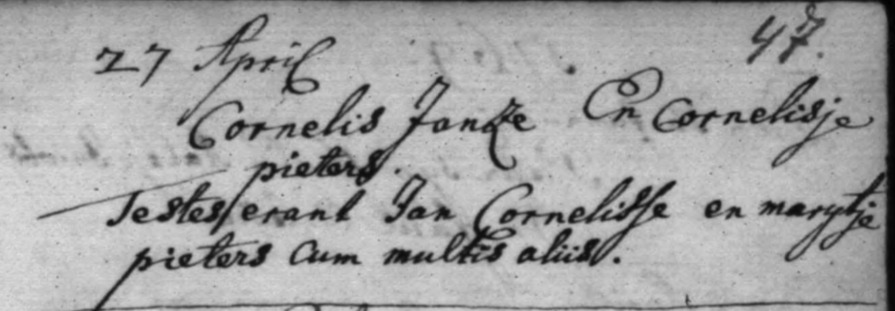 47.
27 April
Cornelis Janze En Cornelisje
pieters.
Testes erant Jan Cornelisse en marytje
pieters Cum multis aliis.